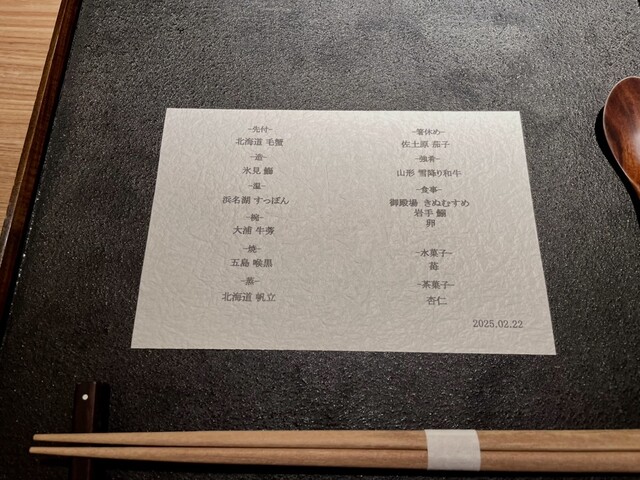 -先付-
北海道 毛蟹
-造-
氷見 鰤
-温-
浜名湖 すっぽん
-椀-
大浦 牛蒡
-焼-
五島 喉黒
-蒸-
北海道 帆立
-箸休め-
佐土原 茄子
-強肴-
山形 雪降り和牛
-食事-
御殿場 きぬむすめ
岩手
卵
-水菓子-
苺
-茶菓子-
杏仁
2025.02.22